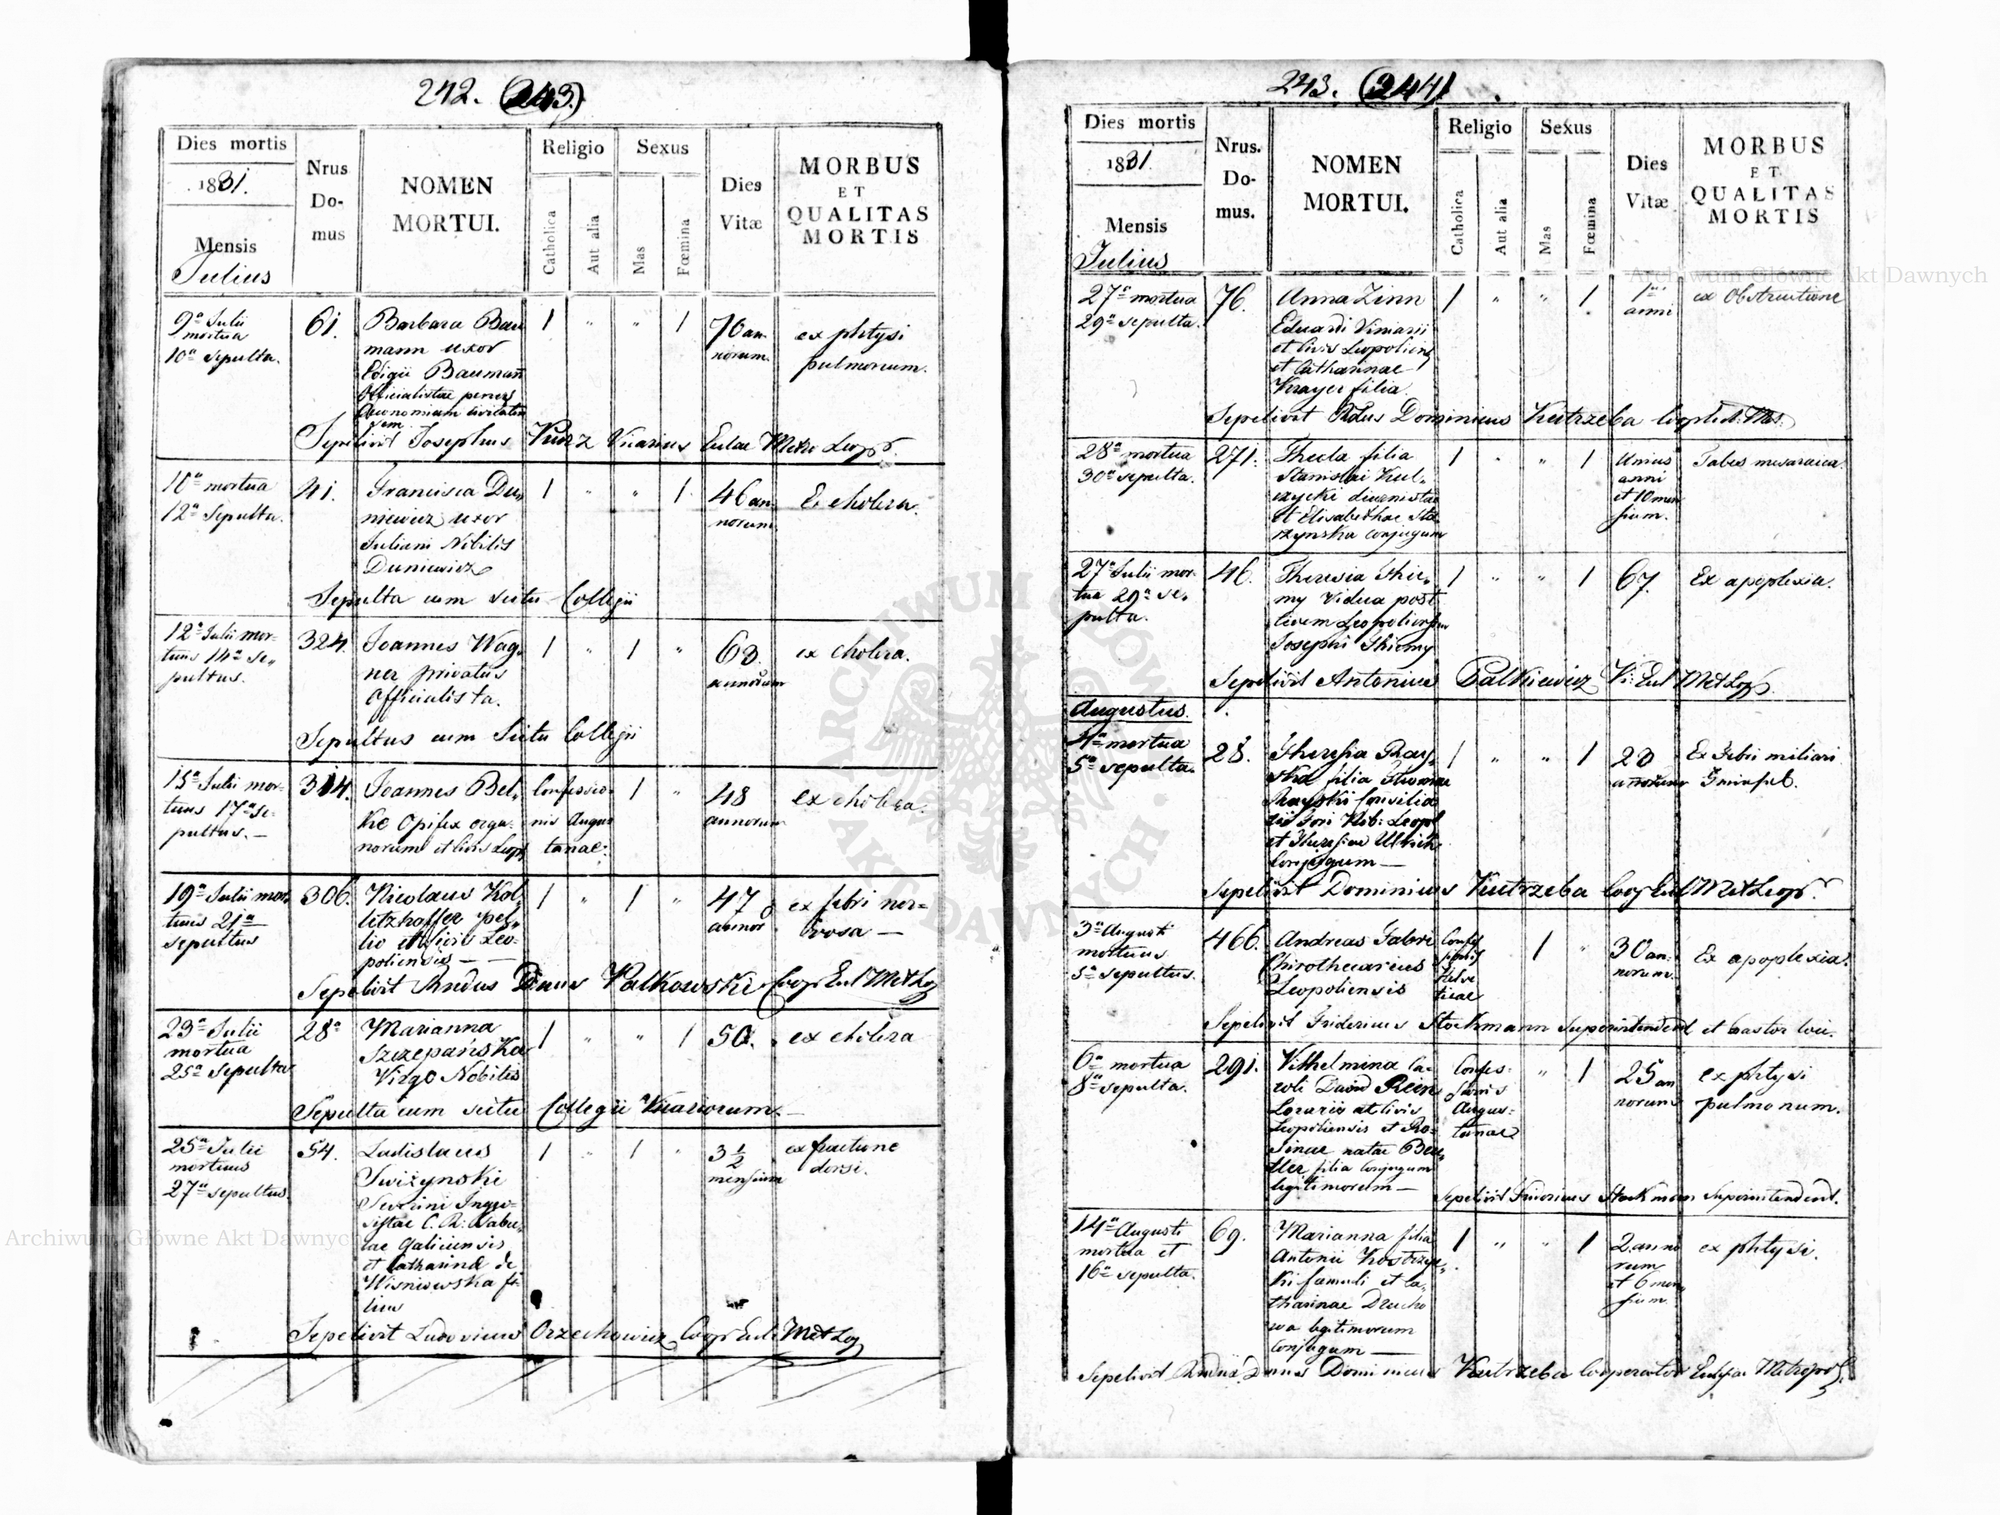 242. (243.)
Dies mortis
1831.
Mensis
Julius
Nrus
Do-
mus
NOMEN
MORTUI.
Religio
Catholica
Aut alia
Sexus
Mas
Fœmina
Dies
Vitæ
MORBUS
ET
QUALITAS
MORTIS
9a Julii
mortua
10a Sepulta.
61.
Barbara Bau
mann uxor
Edigii Baumann
Officialistae penes
Oeconomiam civitaten
sem
1 " " 1
70 an-
norum.
ex phtysi
pulmonum.
Sepelivit Josephus Kunz Vicarius Eulae Metr Leop.
10a mortua
12a Sepulta.
41.
Francisca Du,,
niewicz uxor
Juliani Nobilis
Duniewicz
1 " " 1
46 an-
norum
Ex cholera.
Sepulta cum scitu Collegii
12a Julii mor-
tuus 14a Se,,
pultus.
324.
Joannes Wag,,
ner privatus
Officialista.
1 " 1 "
68.
annorum
ex cholera.
Sepultus cum Scitu Collegii
15a Julii mor-
tuus 17a Se-
pultus. –
314.
Joannes Bel,,
ke Opifex orga-
norum et civis Leop
Confessio-
nis Augus
tanae.
1 "
48
annorum
ex cholera.
19a Julii mor-
tuus 21a
sepultus
306.
Nicolaus Kol,,
litzhoffer pel,,
lio et Civis Leo-
poliensis – –
1 " 1 "
47
annor
ex febri ner=
vosa –
Sepelivit Rndus Dnus Kalkowski Coop Eul Met Leop
23a Julii
mortua
25a Sepulta
28a
Marianna
Szczepańska
Virgo Nobilis
1 " " 1
50.
ex cholera
Sepulta cum scitu Collegii Vicariorum. –
25a Julii
mortuus
27a sepultus.
54.
Ladislaus
Swiżynski
Severini Ingro-
sistae C. R: Tabu,,
lae Galiciensis
et Catharinae de
Wisniewska fi-
lius
1 " 1 "
3 1/2
mensium
ex fractune
dorsi.
Sepelivit Ludovicus Orzechowicz Coop Eul Met Leop
243. (244)
Dies mortis
1831.
Mensis
Julius
Nrus.
Do-
mus.
NOMEN
MORTUI.
Religio
Catholica
Aut alia
Sexus
Mas
Fœmina
Dies
Vitæ
MORBUS
ET
QUALITAS
MORTIS
27a mortua
29a sepulta.
76.
Anna Zinn
Eduardi Viniarii
et Civis Leopoliens
et Catharinae
Krayer filia
1 " " 1
anni
ex Obstructione
Sepelivit Dominicus Kutrzeba
28a mortua
30a sepulta.
271.
Thecla filia
Stanislai Kul-
czycki diurnistae
et Elisabethae Sta
rzynska conjugum
1 " " 1
Unius
anni
et 10 men
sium.
Tabes mesaraica.
27a Julii mor-
tua 29a Se,,
pulta.
46.
Theresia Thie,,
my Vidua post
Civem Leopoliensem
Josephi Thiemy
1 " " 1
67.
Ex apoplexia.
Sepelivit Antonius Palkiewicz Vi: Eul Met Leop.
Augustus.
4a mortua
5a sepulta.
28.
Theresia Ray,,
ska filia Thomae
Rayski Consilia
rii Fori Nob: Leopol
et Theresiae Ullrich
Conjugum –
1 " " 1
20
annorum
Ex Febri miliari
Sepelivit Dominicus Kutrzeba Coop Eul Met Leop
3a Augusti
mortuus
5a sepultus.
466.
Andreas Fabri
Chirothecarius
Leopoliensis
Confes
sionis
Helve
ticae
1 "
30 an-
norum.
Ex apoplexia.
Sepelivit Fridericus Stockmann Superintendent et Pastor
6a mortua
8a sepulta.
291.
Vilhelmina Ca-
roli David Rein
Lorarii at Civis
Leopoliensis et Ro-
sinae natae Beu,,
filia conjugum
legitimorum –
Confes-
sionis
Augus-
tanae
" 1
25 an
norum
ex phtysi
pulmonum.
Sepelivit Fridericus Stockmann Superintendent.
14a Augusti
mortua et
16a sepulta.
69.
Marianna filia
Antonii Kostrze,,
ki famuli et Ca-
tharinae Drucho
wa legitimorum
Conjugum –
1 " " 1
2 anno
rum
et 6 men
sium.
ex phtysi.
Sepelivit Rndus Dnus Dominicus Kutrzeba Cooperator Ecclsiae Metropol.
Archiwum Główne Akt Dawnych
Archiwum Główne Akt Dawnych
ARCHIWUM GŁÓWNE
AKT DAWNYCH